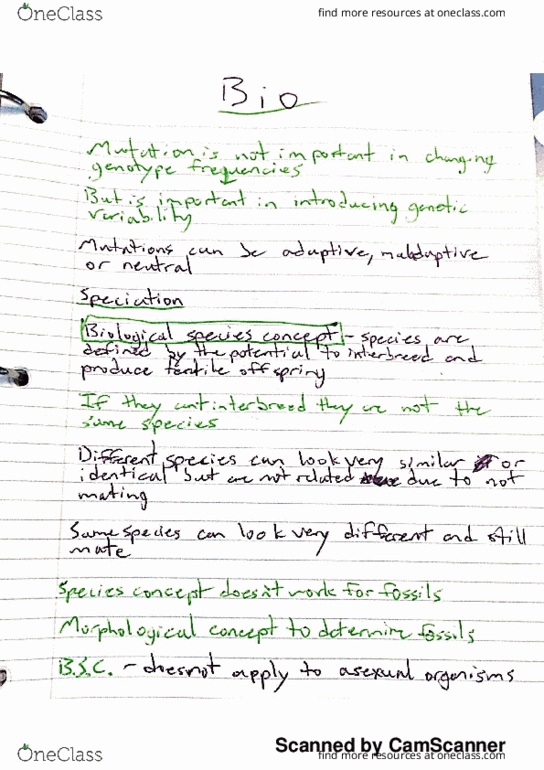 OneClass
find more resources at oneclass.com
Bio
Mutation is not important in changing
genotype frequencies
But is important in introducing genetic
variability
Mutations can be adaptive, maladuptive
or neutral
Speciation
Biological species concept - species are
defined by the potential to interbreed and
produce fertile offspring
If they cant interbreed they are not the
same species
Different species can look very similar or
identical but are not related due to not
mating
Same species can look very different and still
mate
Species concept doesn't work for fossils
Morphological concept to determine fossils
B.S.C. - does not apply to asexual organisms
Scanned by CamScanner
OneClass
find more resources at oneclass.com